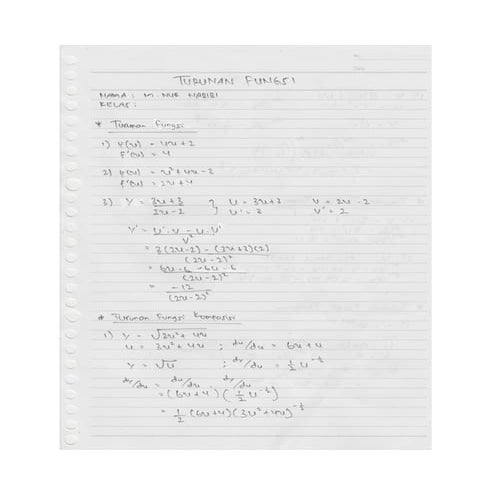 TURUNAN FUNGSI
NAMA : M. NUR HABIBI
KELAS :
* Turunan Fungsi
1) f(x) = 4x + 2
f'(x) = 4
2) f(x) = x² + 4x - 2
f'(x) = 2x + 4
3) y = 3x+3 / 2x-2 ; U = 3x+3 V = 2x - 2
; U' = 3 V' = 2
y' = U'.V - U.V' / V²
= 3(2x-2) - (3x+3)(2) / (2x-2)²
= 6x-6 - 6x-6 / (2x-2)²
= -12 / (2x-2)²
* Turunan Fungsi Komposisi
1) y = √3x² + 4x
u = 3x² + 4x ; du/dx = 6x + 4
y = √u ; dy/du = ½ u^-½
dy/dx = du/dx dy/du
= (6x+4) (½ u^-½)
= ½ (6x+4) (3x²+4x)^-½